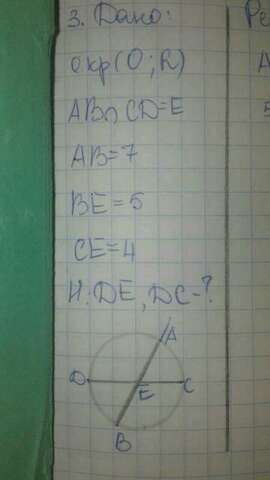 3. Дано:
окр(O; R)
AB∩CD=E
AB=7
BE=5
CE=4
Н: DE, DC-?
A
D
E
C
B